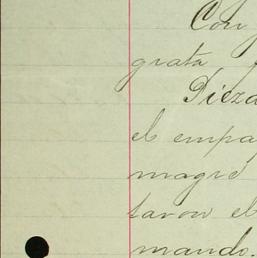 Con
grata
Pieza
el empa
magré
taron el
mando.